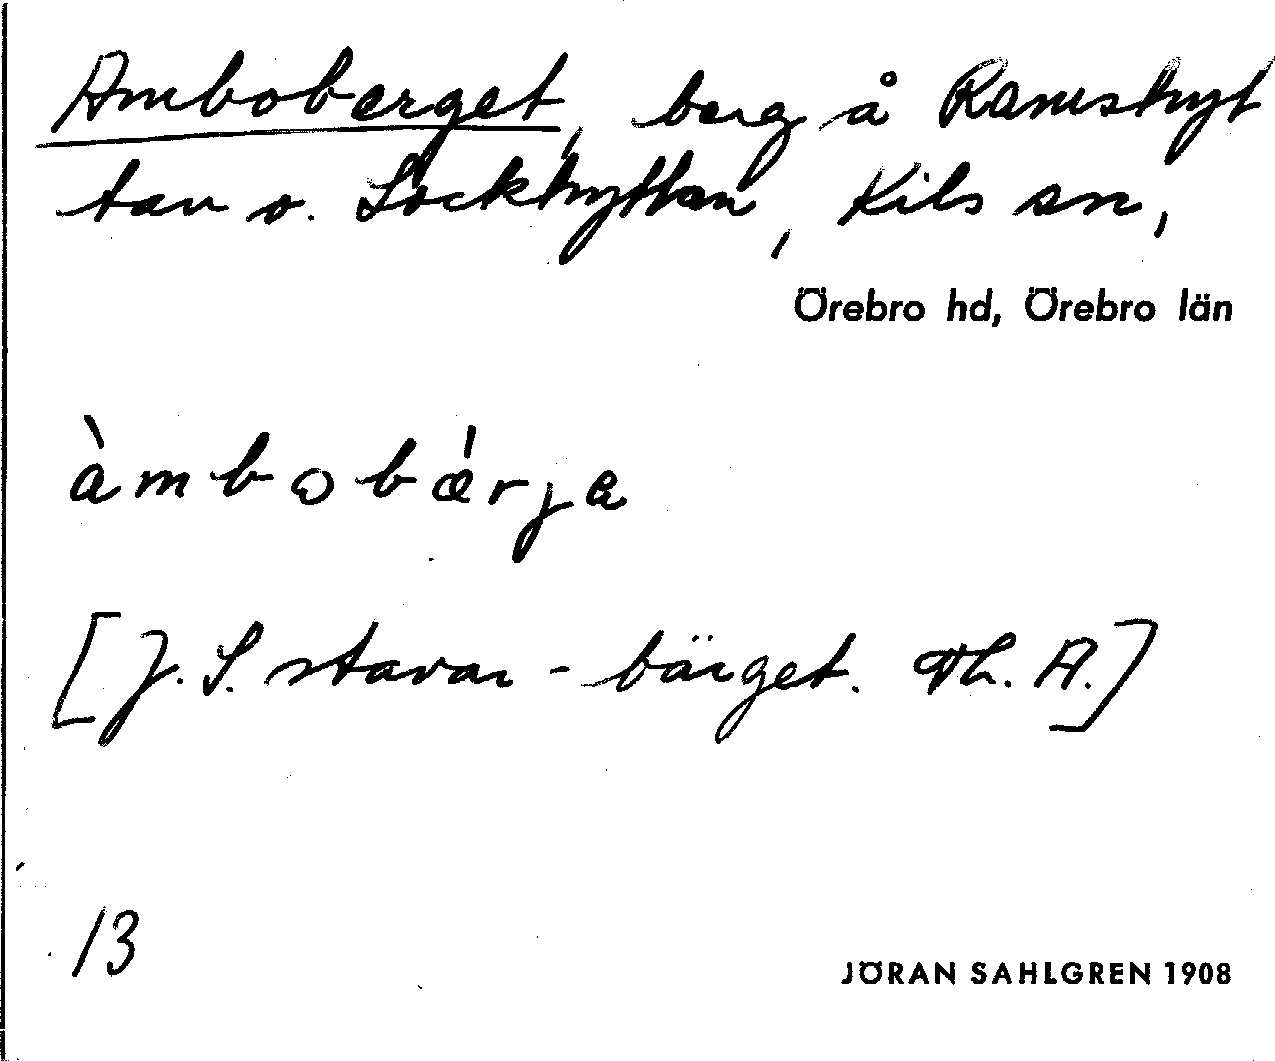 Amboberget, berg å Ramshyt
tan o. Lockhyttan, Kils sn,
Örebro hd, Örebro län
àmbobǽrja
[J. S. stavar -bärget. Th. A.]
13
JÖRAN SAHLGREN 1908